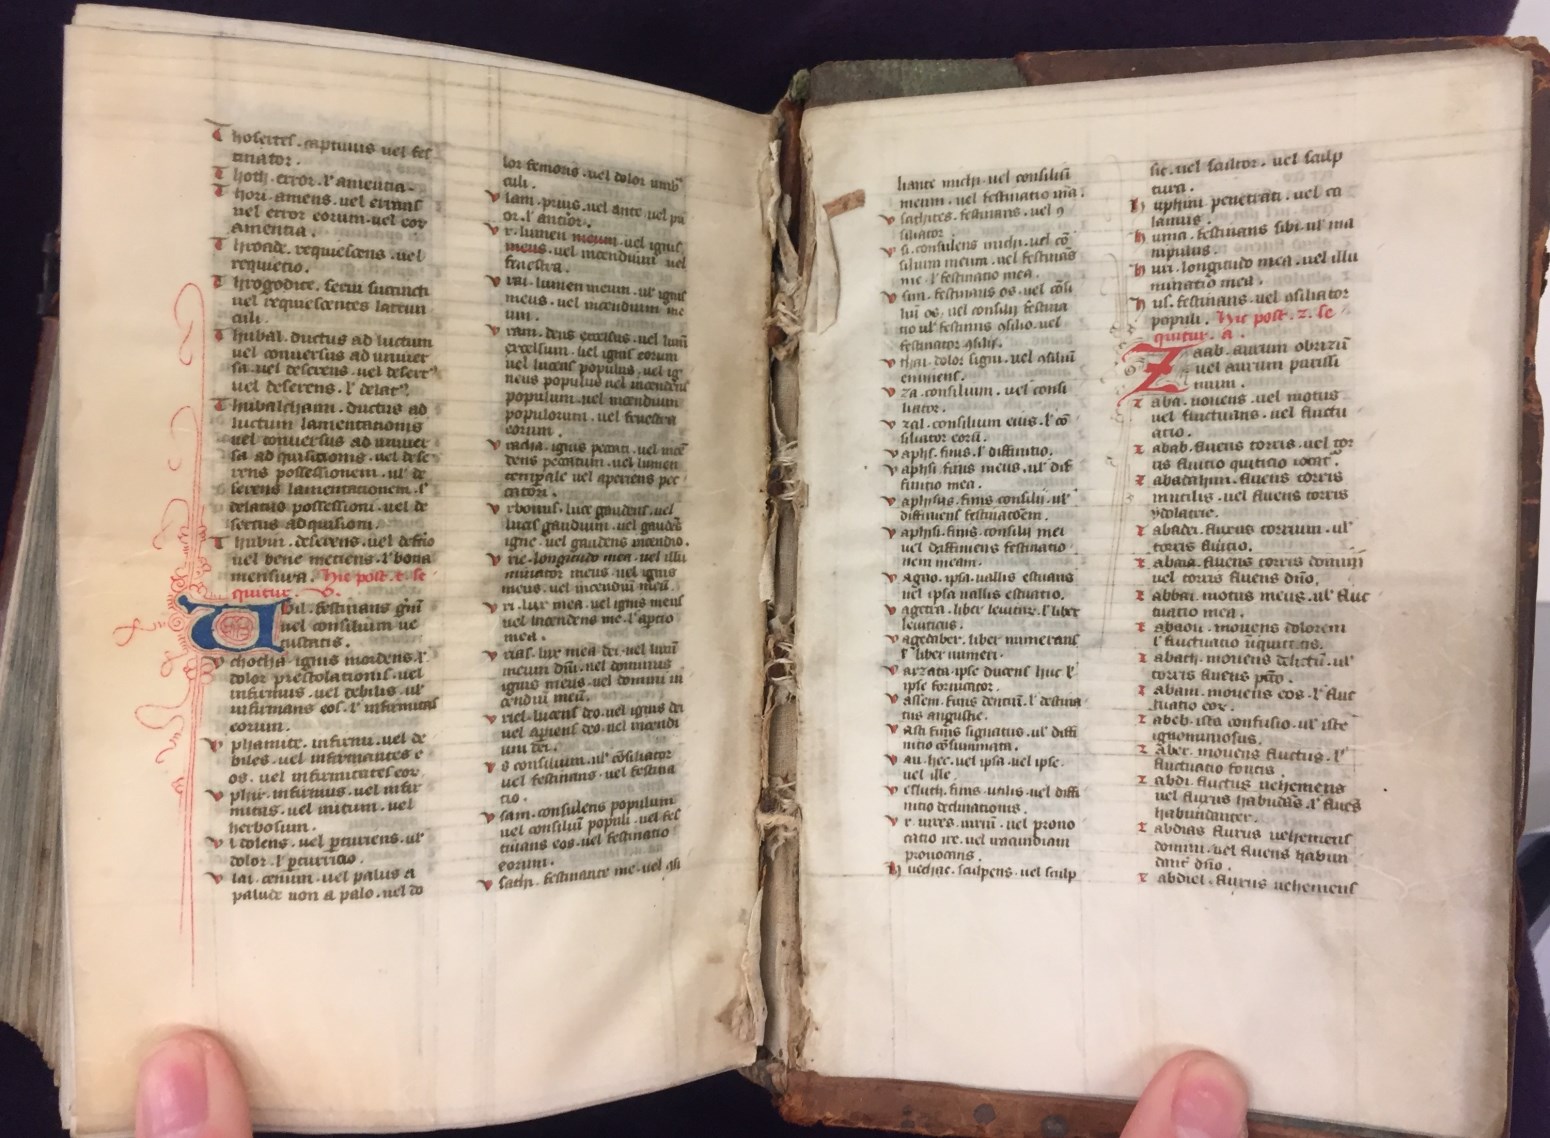 Thosertes. captiuus uel fes
tinator.
Thoth. error. l' amentia.
Thou. amens. uel
uel error eorum. uel eor
amentia.
requiescens. uel
requietio.
uel requiescentes laterun
culi.
Thubal. ductus ad luctum
uel conuersus ad uniuer
sa. uel deserens. uel
uel deserens. l'
Thubalcham. ductus ad
luctum lamentationis
uel conuersus ad uniuer
sa adquisitionis. uel dese
rens possessionem. ul' de
serens lamentationem. l'
delatus possessioni. uel de
sertus adquisitioni.
Thubin. deserens. uel
uel bene metiens. l' bona
mensura. hic post. t. se
quitur. v.
Vbil. festinans
uel consilium ue
tustatis.
Vchocha. ignis mordens. l'
dolor prestolationis. uel
infirmus. uel debilis. ul'
infirmans eos. l' infirmitas
eorum.
Vphamite. infirmi. uel de
biles. uel infirmantes e
os. uel infirmitates eor
Vphir. infirmus. uel infir
mitas. uel initum. uel
herbosum.
Vl dolens. uel parturiens. ul'
dolor. l' parturitio.
Vlai. cenum. uel palus a
palude non a palo. uel do
lor femoris. uel dolor umb
culi.
Vlam. prius. uel ante. uel
or. l'
Vr. lumen meum. uel ignis
meus. uel incendium uel
fenestra.
Vrai. lumen meum. ul' ignis
meus. uel incendium me
um.
Vram. deus excelsus. uel
excelsum. uel ignis eorum
uel lucens populus. uel ig
neus populus uel incendens
populum. uel incendium
populorum. uel fenestra
eorum.
ignis peccati. uel
dens peccatum. uel lumen
uel aperiens pec
catori.
Vrbonus. luce gaudens. uel
lucis gaudium. uel gaudens
igne. uel gaudens incendio.
Vrie. longitudo mea. uel illu
minator meus. uel ignis
meus. uel incendium meum.
Vri. lux mea. uel ignis meus
uel incendens me. l'
mea.
Vrias. lux mea dei. uel lumen
meum domini. uel dominus
ignis meus. uel domini in
cendium meum.
Vriel. lucens deo. uel ignis dei
uel aperiens deo. uel incendi
um dei.
Vs consilium. ul' consiliator
uel festinans. uel festina
tio.
Vsam. consulens populum
uel consilium populi. uel fes
tinans eos. uel festinatio
eorum.
Vsathi. festinante me. uel
liante michi. uel consilium
meum. uel festinatio mea.
Vsathites. festinans. uel con
siliator.
Vsi. consulens michi. uel con
silium meum. uel festinans
me. l' festinatio mea.
Vsim. festinans os. uel consi
lium os. uel consilii festina
tio ul' festinans consilio. uel
festinator consilii.
Vthai. dolor signi. uel consilium
eminens.
Vza. consilium. uel consi
liator.
Vzal. consilium eius. l' con
siliator eorum.
Vaphs. finis. l' diffinitio.
Vaphsi finis meus. ul' dif
finitio mea.
Vaphsus. finis consilii. ul'
diffiniens
Vaphsi. finis. consilii mei
uel diffiniens festinatio
nem meam.
Vagao. ipsa uallis estuans
uel ipsa uallis estuatio.
Vagetra. liber leuitar. l' liber
leuiticus.
Vagedaber. liber numerans
l' liber numeri.
Varzata. ipse ducens huc l'
ipse fornicator.
Vassem. finis dentium. l' destina
tus angustie.
Vasti finis signatus. ul' diffi
nitio consummata.
Vau. hec. uel ipsa. uel ipse.
uel ille.
Velluth. finis utilis. uel diffi
nitio declinationis.
Vr. uires uirium. uel prono
catio ire. uel iracundiam
prouocans.
sculpens. uel sculp
sit. uel sculptor. uel sculp
tura.
Huphini penetrati. uel ca
lamus.
Huma. festinans sibi. ul' ma
nipulus.
Huri. longitudo mea. uel illu
minatio mea.
Hus. festinans. uel consiliator
populi. hic post. z. se
quitur. a.
Zaab. aurum obrizum
uel aurum purissi
mum.
Zaba. mouens. uel motus
uel fluctuans. uel fluctu
atio.
Zabab. fluens torris. uel tor
ris
Zabacahim. fluens torris
inutilis. uel fluens torris
ydolatrie.
Zabadei. fluens torrium. ul'
torris fluitio.
Zabaia. fluens torris domini
uel torris fluens domino.
Zabbai. motus meus. ul' fluc
tuatio mea.
Zabaon. mouens dolorem
l' fluctuatio iniquitatis.
Zabath. mouens delictum. ul'
torris fluens peccato.
Zabam. mouens eos. l' fluc
tuatio eor.
Zabeb. ista confusio. ul' iste
ignominiosus.
Zaber. mouens fluctus. l'
fluctuatio fontis.
Zabdi. fluctus uehemens
uel fluxus habundans. l' fluens
habundanter.
Zabdias fluxus uehemens
domini. uel fluens habun
danter domino.
Zabdiel. fluxus uehemens